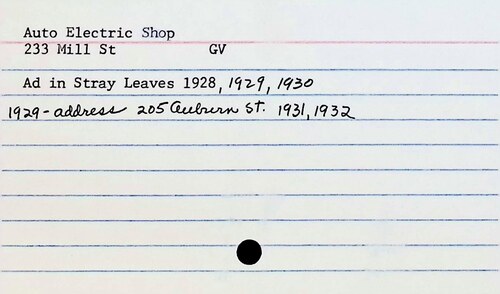 Auto Electric Shop
233 Mill St GV
Ad in Stray Leaves 1928, 1929, 1930
1929 - address 205 Auburn St. 1931, 1932